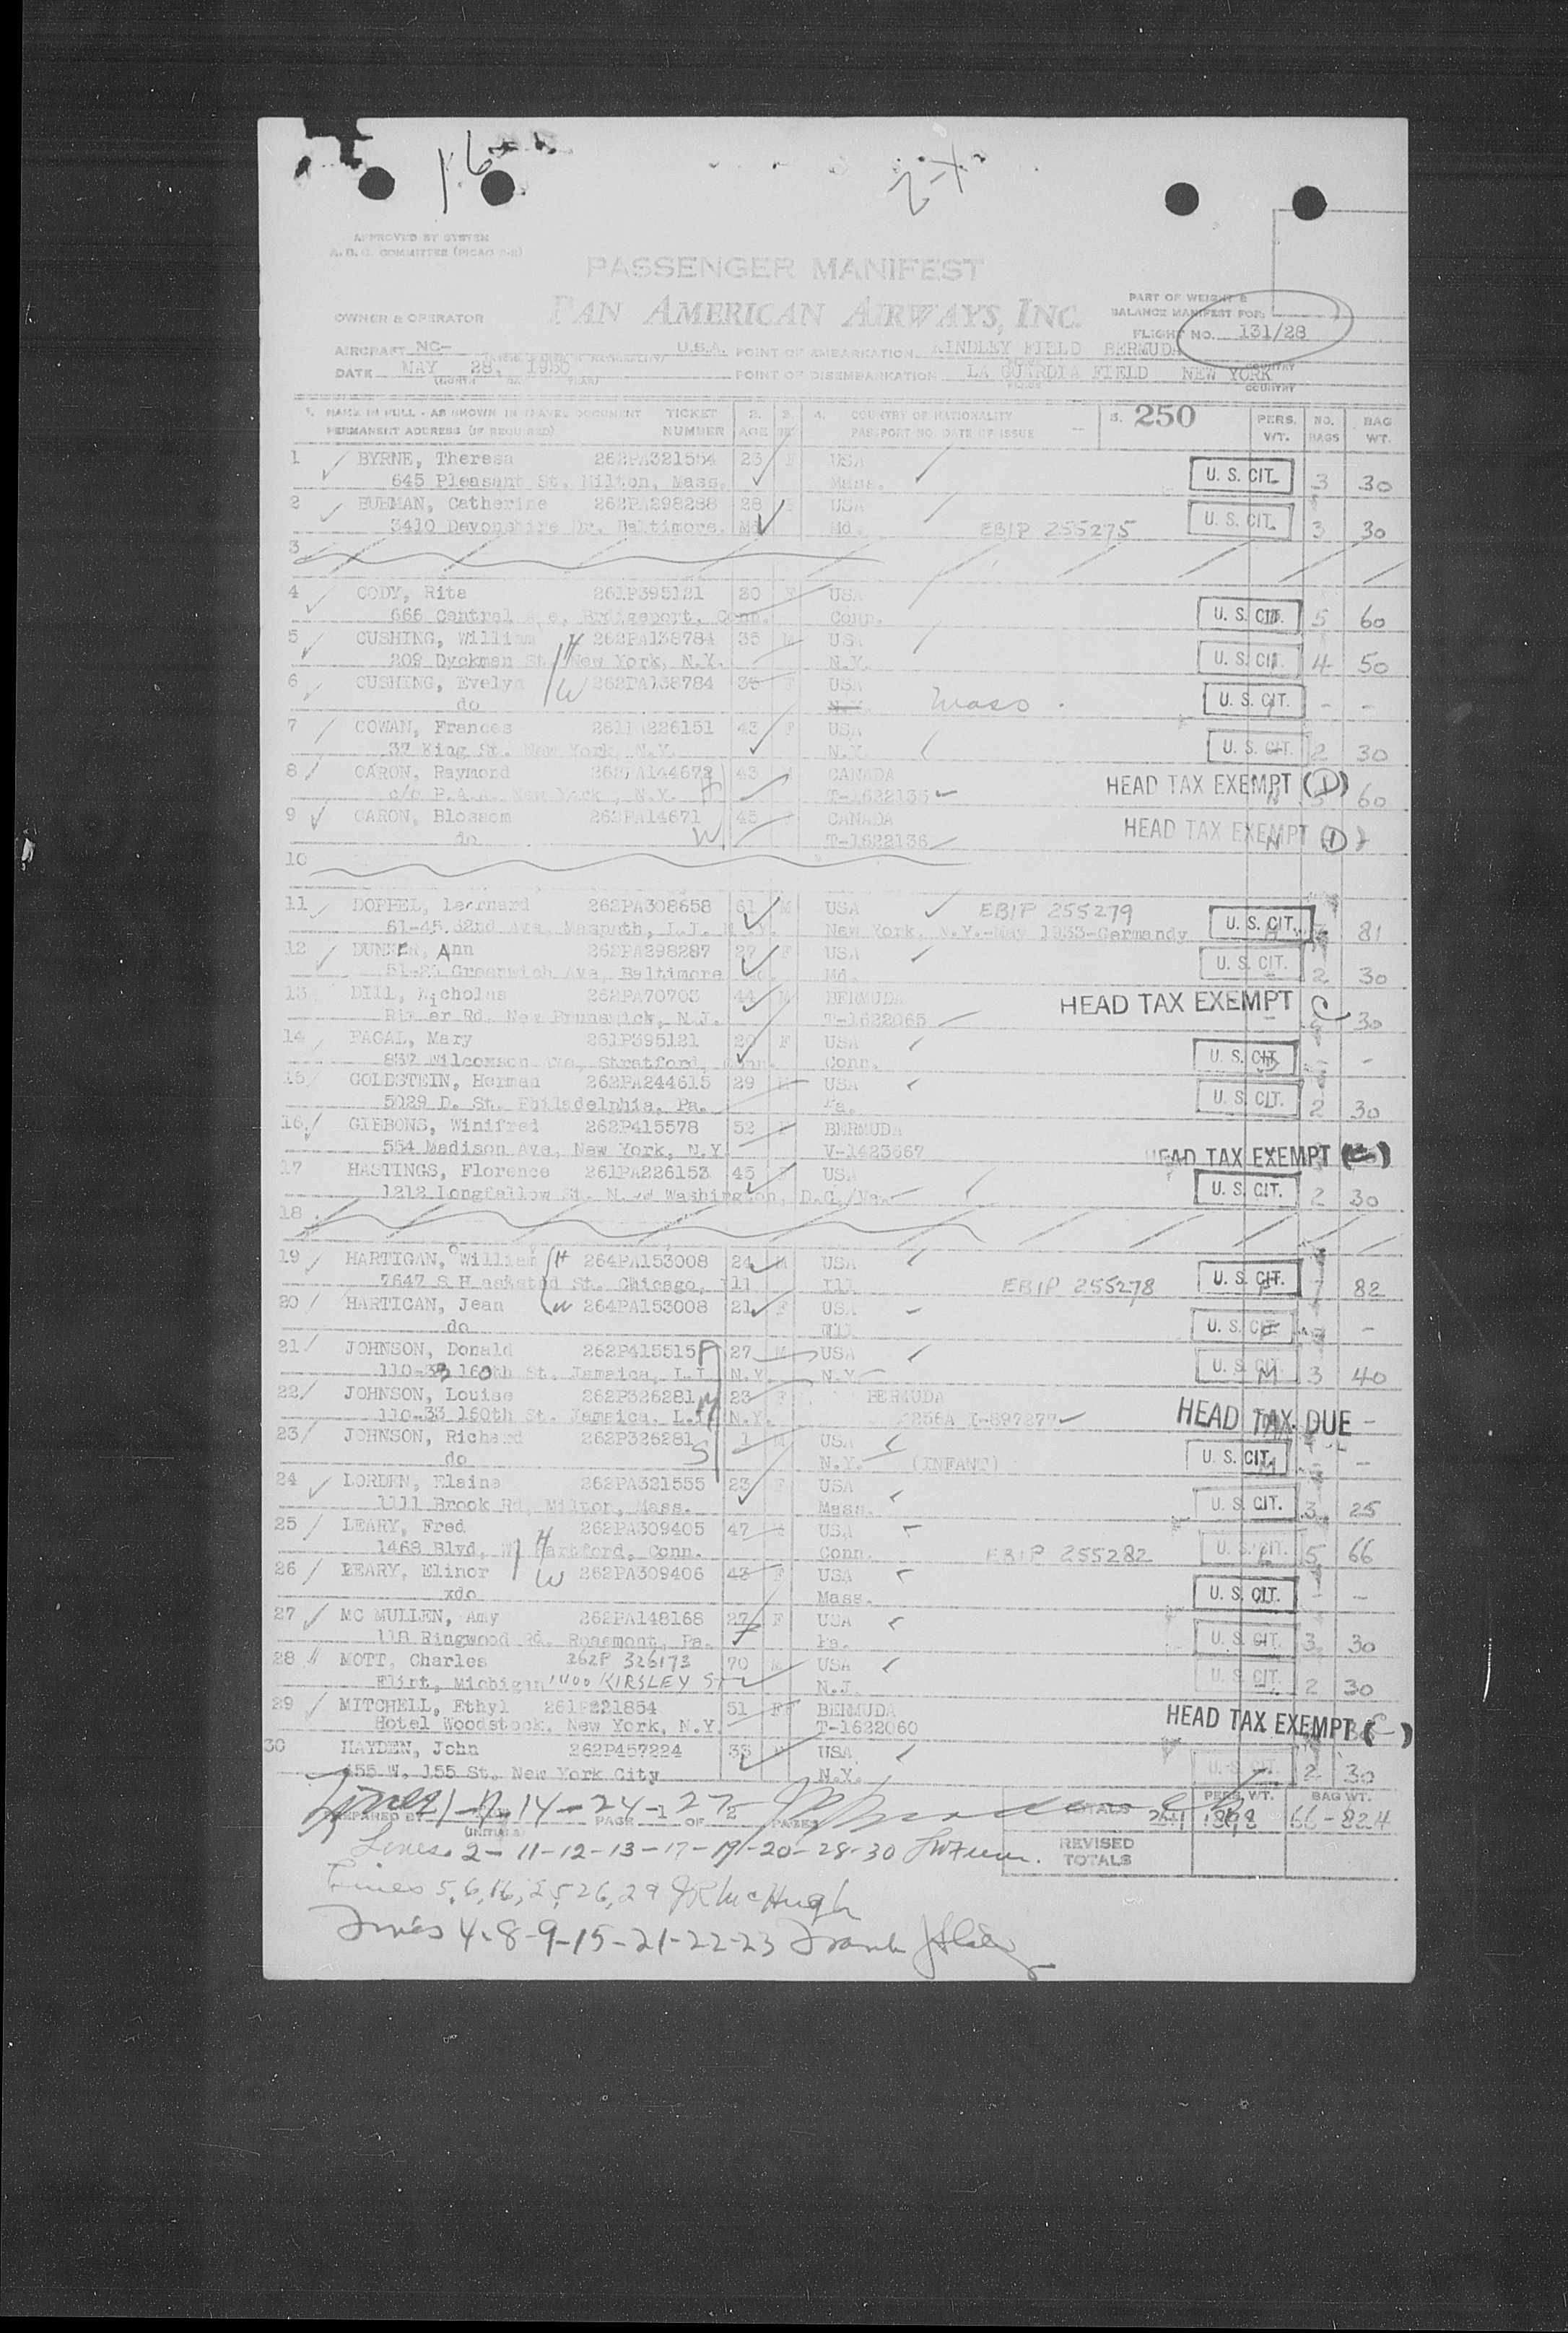 16
2-X
APPROVED BY SYSTEM
A.D.C. COMMITTEE (PICAO
PASSENGER MANIFEST
PAN AMERICAN AIRWAYS, INC.
OWNER & OPERATOR
PART OF WEIGHT &
BALANCE MANIFEST FOR:
FLIGHT NO. 131/28
AIRCRAFT NC- U.S.A. POINT OF EMBARKATION KINDLEY FIELD BERMUDA
DATE MAY 28, 1950 POINT OF DISEMBARKATION LA GUARDIA FIELD NEW YORK
1. NAME IN FULL - AS SHOWN IN TRAVEL DOCUMENT TICKET 2. 3. 4. COUNTRY OF NATIONALITY 5. 250 PERS. NO. BAG
PERMANENT ADDRESS (IF REQUIRED) NUMBER AGE SEX PASSPORT NO. DATE OF ISSUE WT. BAGS WT.
1 BYRNE, Theresa 262PA321554 23 F USA
645 Pleasant St. Milton, Mass. Mass. U. S. CIT. 3 30
2 Catherine 262PA298288 28 F USA
3410 Devonshire Dr. Baltimore. Md Md. EBIP 255275 U. S. CIT. 3 30
3
4 CODY, Rita 261P395121 20 F USA
666 Central Ave, Bridgeport, Conn. Conn. U. S. CIT. 5 60
5 CUSHING, William H 262PA138784 35 M USA
209 Dyckman St. New York, N.Y. N.Y. U. S. CIT. 4 50
6 CUSHING, Evelyn W 262PA138784 35 F USA
do N.Y. Mass. U. S. CIT. - -
7 COWAN, Frances 261PA226151 43 F USA
37 King St. New York, N.Y. N.Y. U. S. CIT. 2 30
8 CARON, Raymond 262PA144672 43 M CANADA HEAD TAX EXEMPT (1)
c/o P.A.A. New York, N.Y. H T-1622135 5 60
9 CARON, Blossom 262PA14671 45 F CANADA HEAD TAX EXEMPT (1)
do W T-1622136
10
11 DOPHEL, Leornard 262PA308658 61 M USA EBIP 255279
61-45 82nd Ave, Maspeth, L.I. N.Y. New York, N.Y.-May 1933-Germandy U. S. CIT. 81
12 DUNNER, Ann 262PA298287 27 F USA
Greenwich Ave, Baltimore Md. Md. U. S. CIT. 2 30
13 DILL, Nicholas 262PA70703 44 M BERMUDA HEAD TAX EXEMPT C
River Rd. New Brunswick, N.J. T-1622065 30
14 FAGAL, Mary 261P395121 20 F USA
Wilcoxson Ave, Stratford, Conn. Conn. U. S. CIT. - -
15 GOLDSTEIN, Herman 262PA244615 29 M USA
5029 D. St. Philadelphia, Pa. Pa. U. S. CIT. 2 30
16 GIBBONS, Winifred 262P415578 52 F BERMUDA
554 Madison Ave, New York, N.Y. V-1423667 HEAD TAX EXEMPT
17 HASTINGS, Florence 261PA226153 45 F USA
1212 Longfellow St. N.W Washington, D.C./Va. U. S. CIT. 2 30
18
19 HARTIGAN, William H 264PA153008 24 M USA
7647 S St. Chicago, Ill Ill EBIP 255278 U. S. CIT. 7 82
20 HARTIGAN, Jean W 264PA153008 21 F USA
do Ill U. S. CIT. - -
21 JOHNSON, Donald 262P415515 27 M USA
110-33 160th St. Jamaica, L.I. N.Y. N.Y. U. S. CIT. 3 40
22 JOHNSON, Louise 262P326281 M 23 F BERMUDA
110-33 160th St. Jamaica, L.I. N.Y. 256A I-697277 HEAD TAX DUE -
23 JOHNSON, Richard 262P326281 S 1 M USA
do N.Y. (INFANT) U. S. CIT. - -
24 LORDEN, Elaine 262PA321555 23 F USA
1111 Brook Rd, Milton, Mass. Mass. U. S. CIT. 3 25
25 LEARY, Fred H 262PA309405 47 M USA
1468 Blvd, W. Hartford, Conn. Conn. EBIP 255282 U. S. CIT. 5 66
26 LEARY, Elinor W 262PA309406 43 F USA
xdo Mass. U. S. CIT. - -
27 MC MULLEN, Amy 262PA148168 27 F USA
118 Ringwood Rd. Rosemont, Pa. Pa. U. S. CIT. 3 30
28 MOTT, Charles 262P 326173 70 M USA
Flint, Michigan 1400 KIRSLEY ST N.J. U. S. CIT. 2 30
29 MITCHELL, Ethyl 261P221854 51 F BERMUDA
Hotel Woodstock, New York, N.Y. T-1622060 HEAD TAX EXEMPT
30 HAYDEN, John 262P457224 35 M USA
455 W. 155 St. New York City N.Y. U. S. CIT. 2 30
PREPARED BY PAGE 1 OF 2 PAGES TOTALS PERS. WT. BAG WT.
(INITIALS) 66-824
REVISED
TOTALS
Lines 2-11-12-13-17-19-20-28-30
Lines 5, 6, 16, 25, 26, 29 JR McHugh
Lines 4-8-9-15-21-22-23 Frank